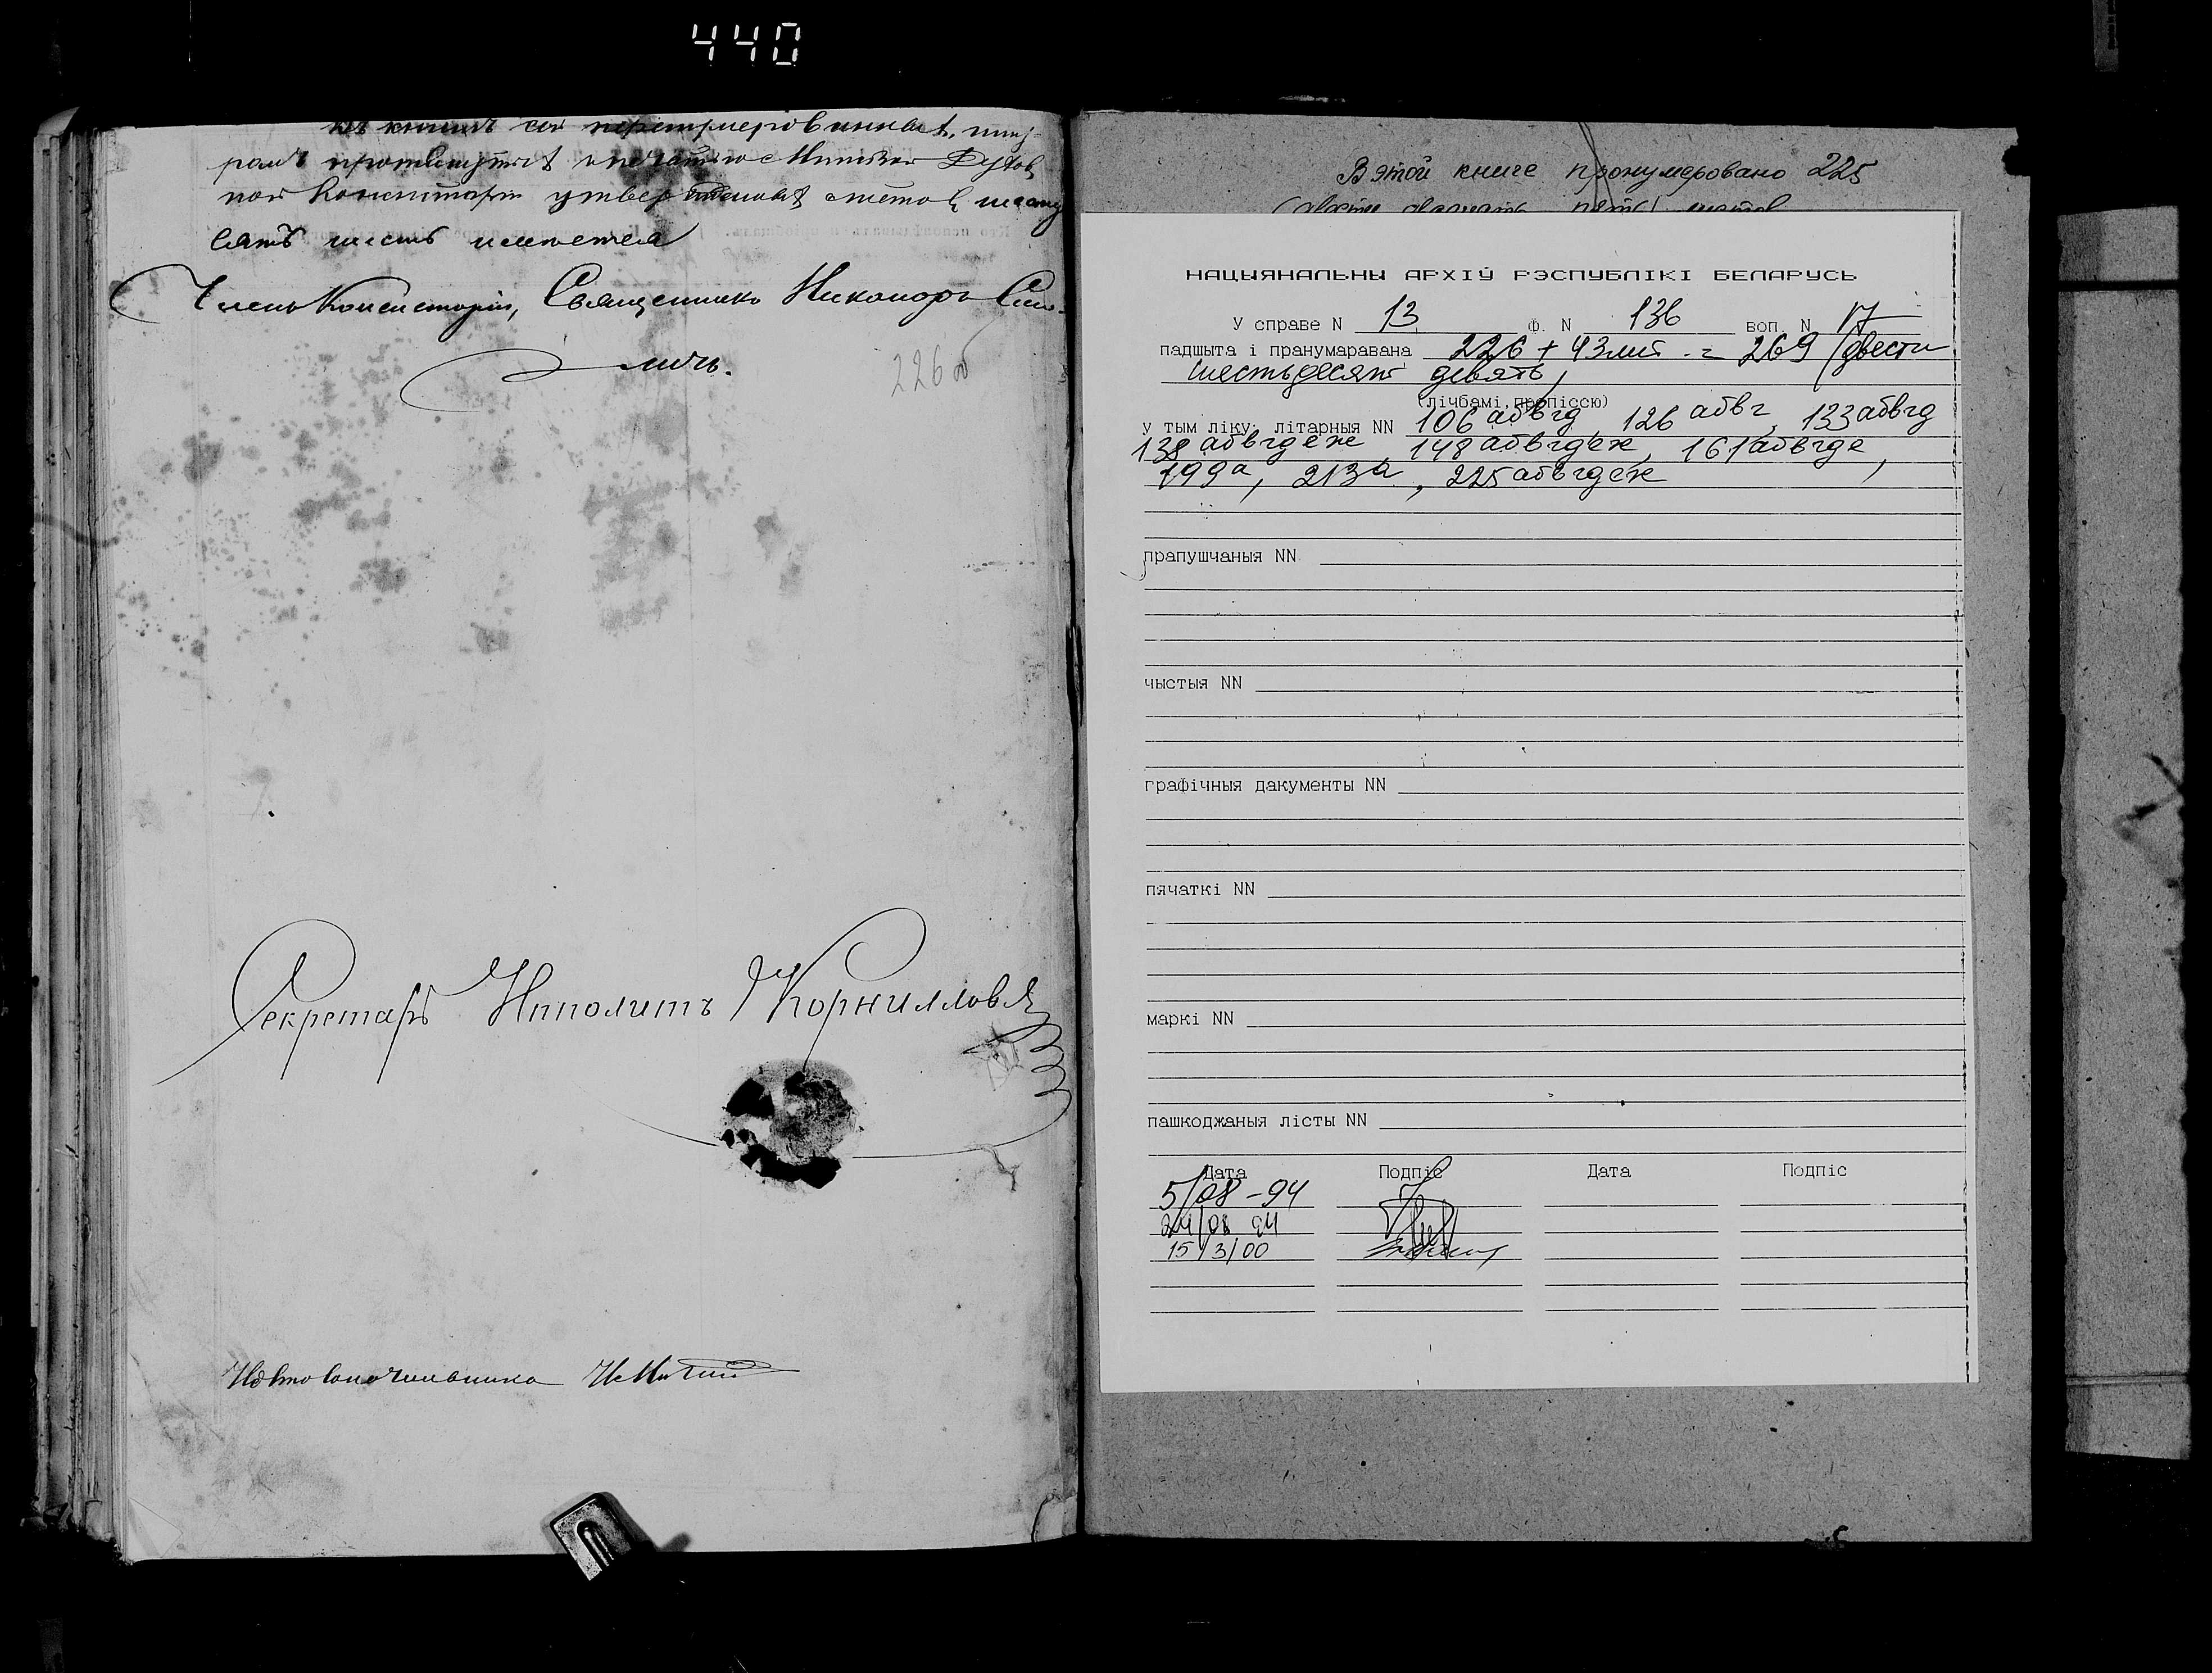 440
въ книгѣ сей перенумерованныхъ, шну-
ромъ
печатью Минской Духов
ной Консисторіи
сятъ шесть имеется
Членъ Консисторіи, Священникъ Никаноръ Смо-
личъ.
226 об
Секретарь Ипполитъ Корниловъ
Столоначальника
В этой книге пронумеровано 225
(двести двадцать пять) листов
НАЦЫЯНАЛЬНЫ АРХІЎ РЭСПУБЛІКІ БЕЛАРУСЬ
У справе N 13 ф. N 136 воп. N 17
падшыта і пранумаравана 226 + 43 лит. = 269 /двести
шестьдесят девять/
(лічбамі, пропіссю)
у тым ліку: літарныя NN 106 абвгд, 126 абвг, 133 абвгд
138 абвгдеж, 148 абвгдеж, 161 абвгде,
199а, 213а, 225 абвгдеж
прапушчаныя NN
чыстыя NN
графічныя дакументы NN
пячаткі NN
маркі NN
пашкоджаныя лісты NN
Дата Подпіс Дата Подпіс
5/08-94
24/08 94
15/3/00